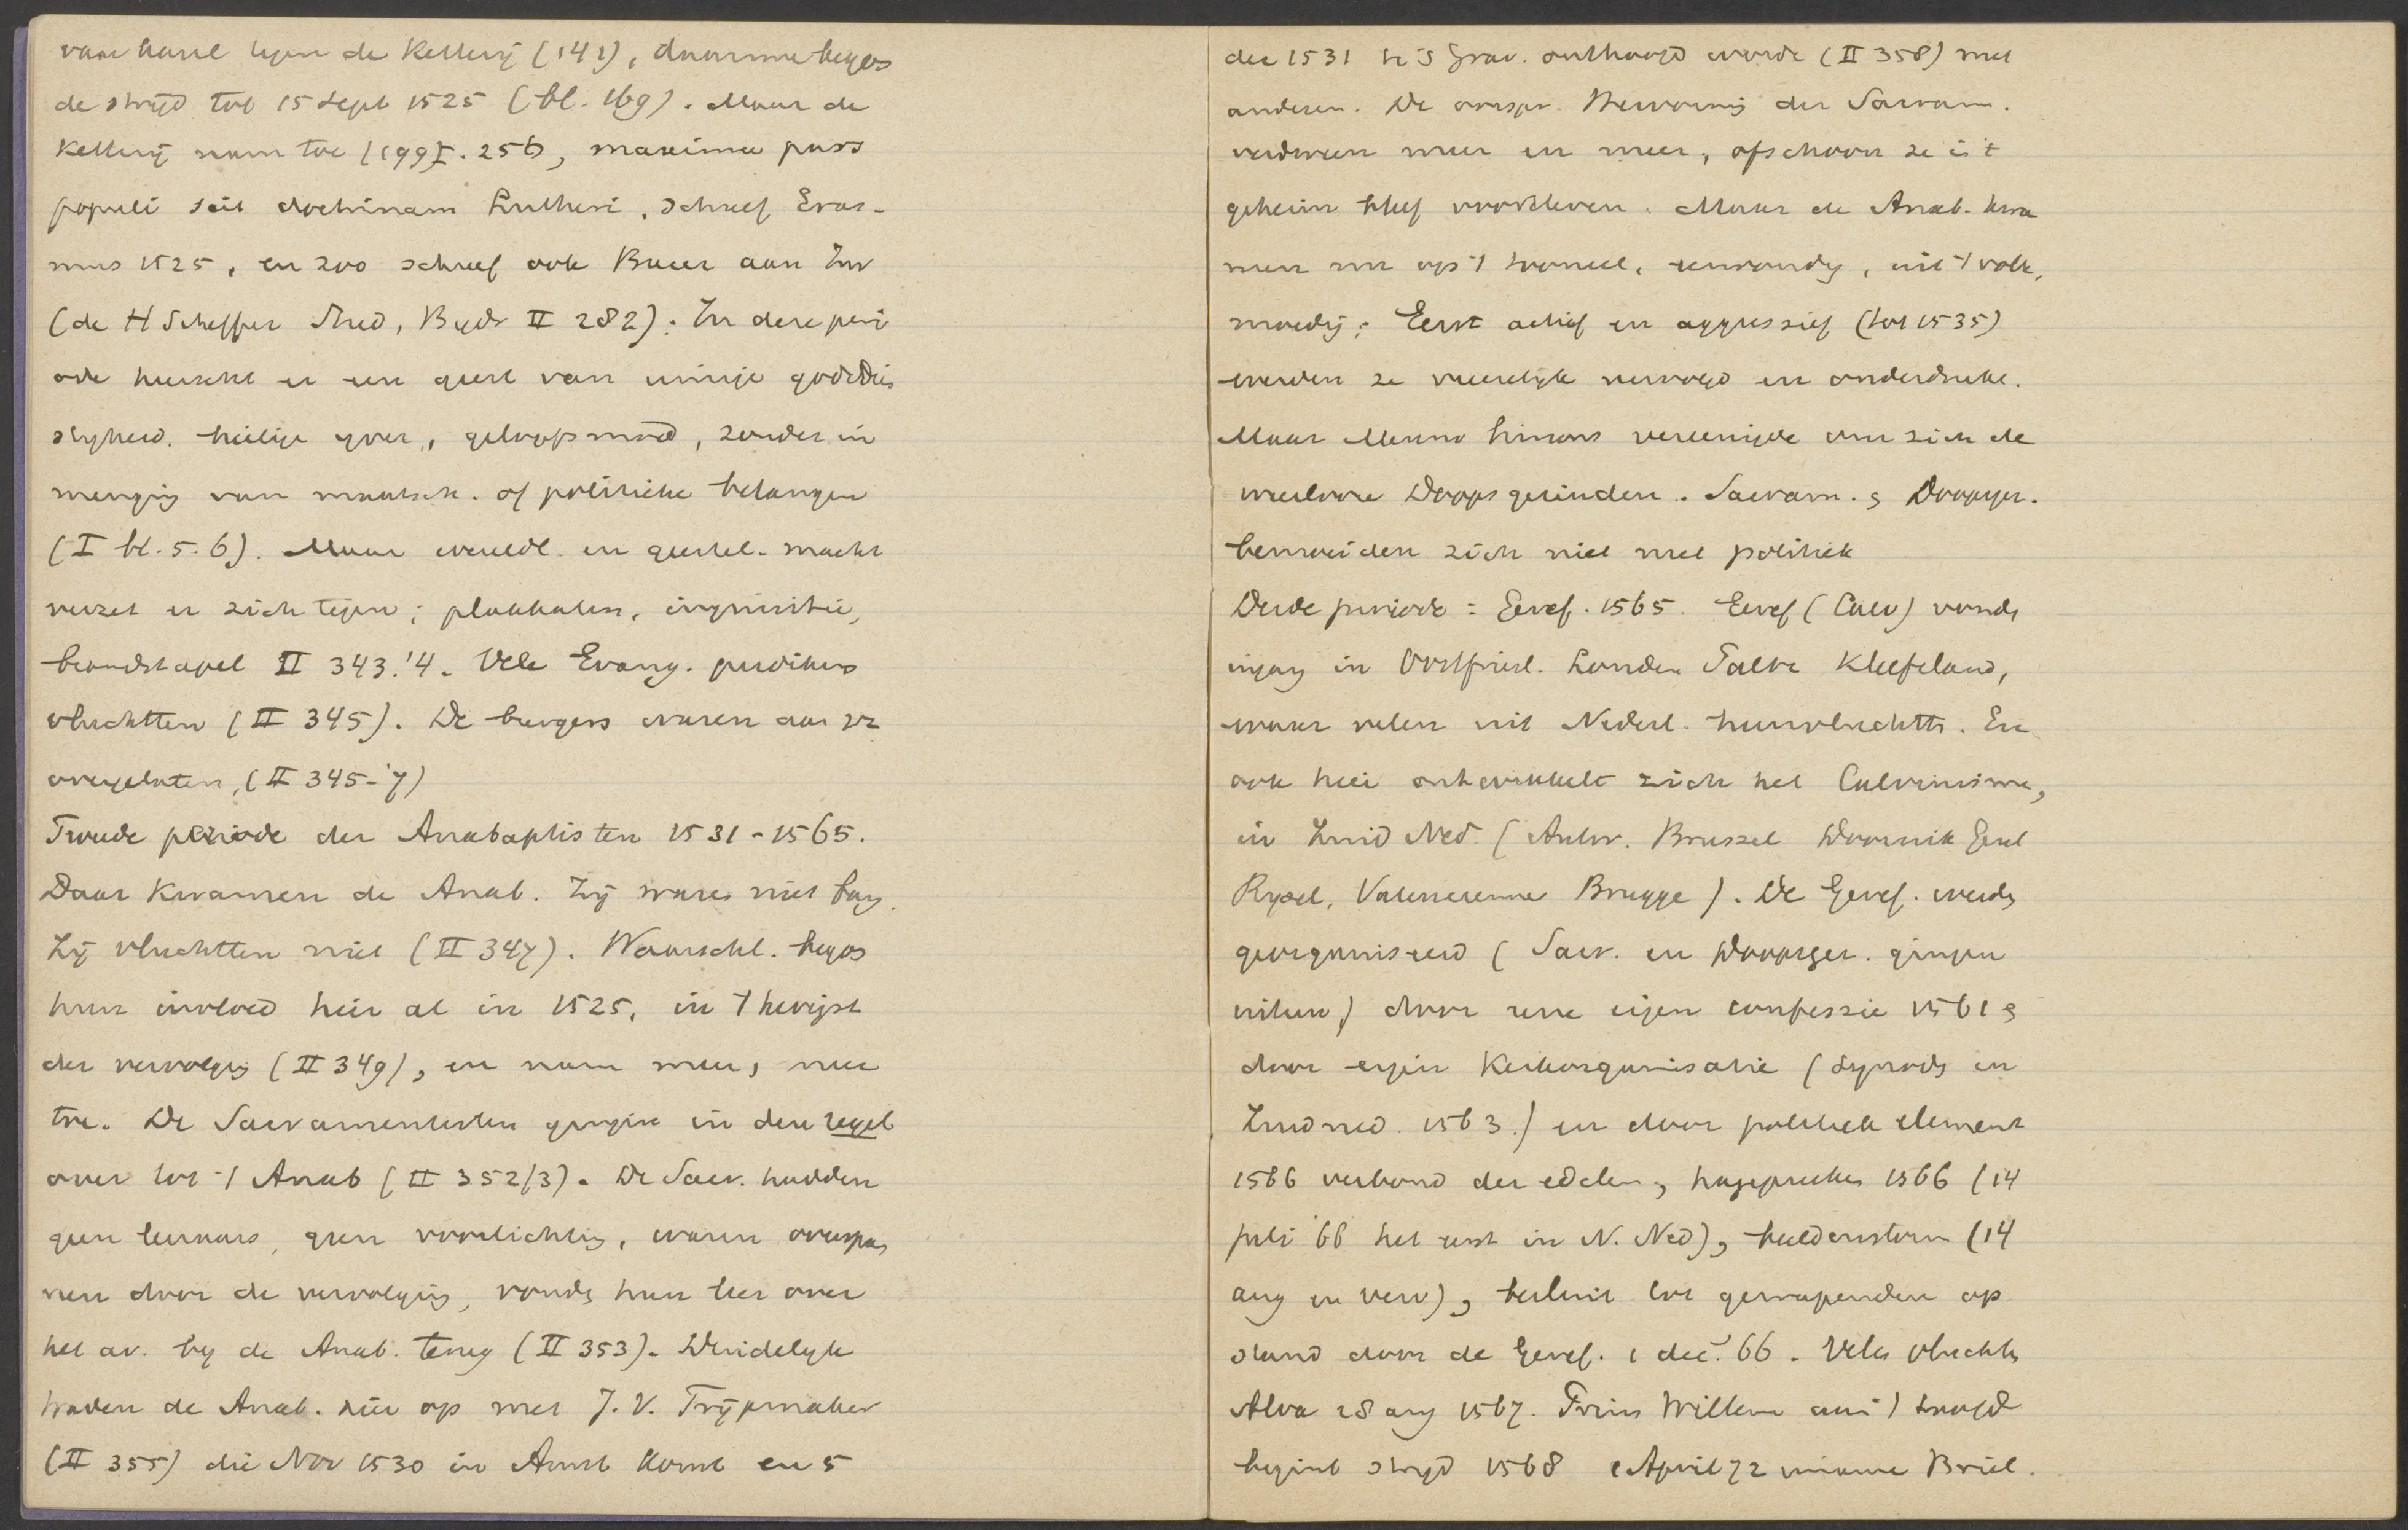 van Karel tegen de Ketterij (141), daarmee begon
de strijd tot 15 Sept 1525 (bl. 169). Maar de
Ketterij nam toe (199 I. 256, maxima pars
populi scit doctrinam Lutheri, schreef Eras-
mus 1525, en zoo schreef ook Bucer aan Zw
(de H Scheffer Stud, Bijdr II 282). In deze peri
ode heerscht er een geest van innige godsdien
stigheid. heilige ijver, geloofsmoed, zonder in
menging van maatsch. of politieke belangen
(I bl. 5. 6). Maar wereldl. en geestel. macht
verzet er zich tegen; plakkaten, inquisitie,
brandstapel II 343.'4. Vele Evang. predikers
vluchtten (II 345). De burgers waren aan zz
overgelaten, (II 345-'7)
Tweede periode der Anabaptisten 1531-1565.
Daar Kwamen de Anab. Zij waren niet bang.
Zij vluchtten niet (II 347). Waarschl. begon
hun invloed hier al in 1525, in 't hevigst
der vervolging (II 349), en nam meer, meer
toe. De Sacramentisten gingen in den regel
over tot 't Anab (II 352/3). De Sacr. hadden
geen leeraars, geen voorlichting, waren overspan
nen door de vervolging, vonden hun leer over
het av. bij de Anab. terug (II 353). Duidelijk
traden de Anab. hier op met J. V. Trijpmaker
(II 355) die Nov 1530 in Amst komt en 5
dec 1531 te 's Grav. onthoofd wordt (II 358) met
anderen. De oorspr. Hervorming der Sacram.
verdween meer en meer, ofschoon ze in 't
geheim bleef voortleven. Maar de Anab. kwa
men nu op 't tooneel, eenvoudig, uit 't volk,
moedig; Eerst actief en aggressief (tot 1535)
werden ze vreeselijk vervolgd en onderdrukt.
Maar Menno Simons vereenigde om zich de
weerlooze Doopsgezinden. Sacram. & Doopsgez.
bemoeiden zich niet met politiek
Derde periode = Geref. 1565. Geref (Calv) vonden
ingang in Oostfriesl. Londen Palts Kleefsland,
waar velen uit Nederl. heenvluchtten. En
ook hier ontwikkelt zich het Calvinisme,
in Zuid Ned. (Antw. Brussel Doornik Gent
Ryssel, Valencienne Brugge). De Geref. werden
georganiseerd (Sacr. en Doopsgez. gingen
uiteen) door eene eigen confessie 1561 &
door eigen Kerkorganisatie (Synode in
Zuidned. 1563.) en door politiek element
1566 verbond der edelen, hagepreken 1566 (14
juli '66 het eerst in N. Ned), beeldenstorm (14
aug en verv), besluit tot gewapenden op
stand door de Geref. 1 dec. '66. Velen vluchten
Alva 28 aug 1567. Prins Willem aan 't hoofd
begint strijd 1568 1 April 72 inname Briel.